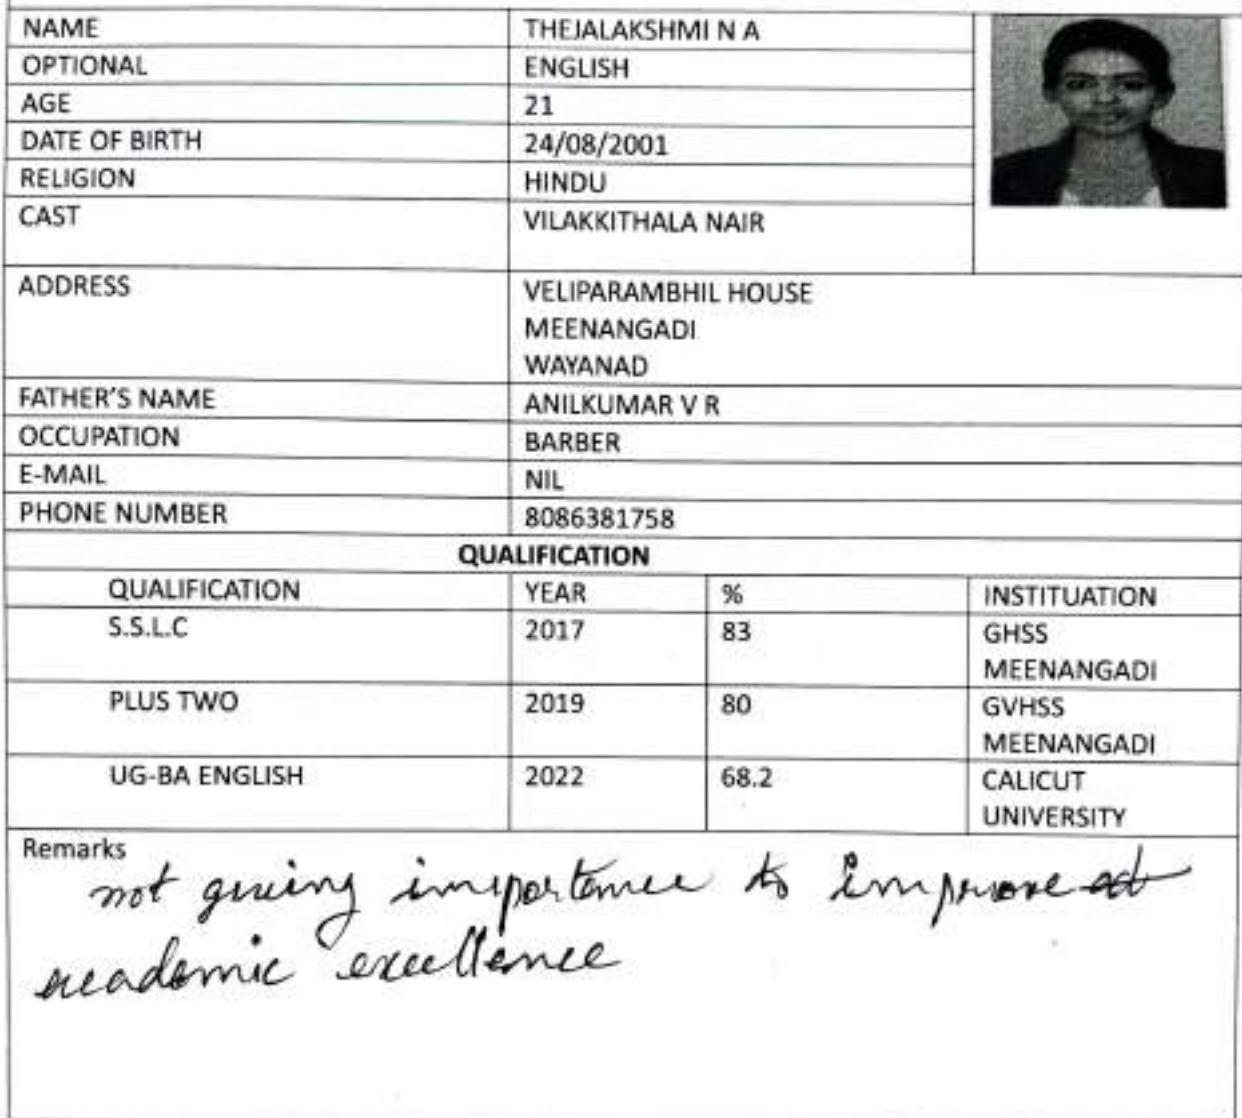 NAME THEJALAKSHMI N A
OPTIONAL ENGLISH
AGE 21
DATE OF BIRTH 24/08/2001
RELIGION HINDU
CAST VILAKKITHALA NAIR
ADDRESS VELIPARAMBHIL HOUSE
MEENANGADI
WAYANAD
FATHER'S NAME ANILKUMAR V R
OCCUPATION BARBER
E-MAIL NIL
PHONE NUMBER 8086381758
QUALIFICATION
QUALIFICATION YEAR % INSTITUATION
S.S.L.C 2017 83 GHSS
MEENANGADI
PLUS TWO 2019 80 GVHSS
MEENANGADI
UG-BA ENGLISH 2022 68.2 CALICUT
UNIVERSITY
Remarks
not giving importance to improve
academic excellence